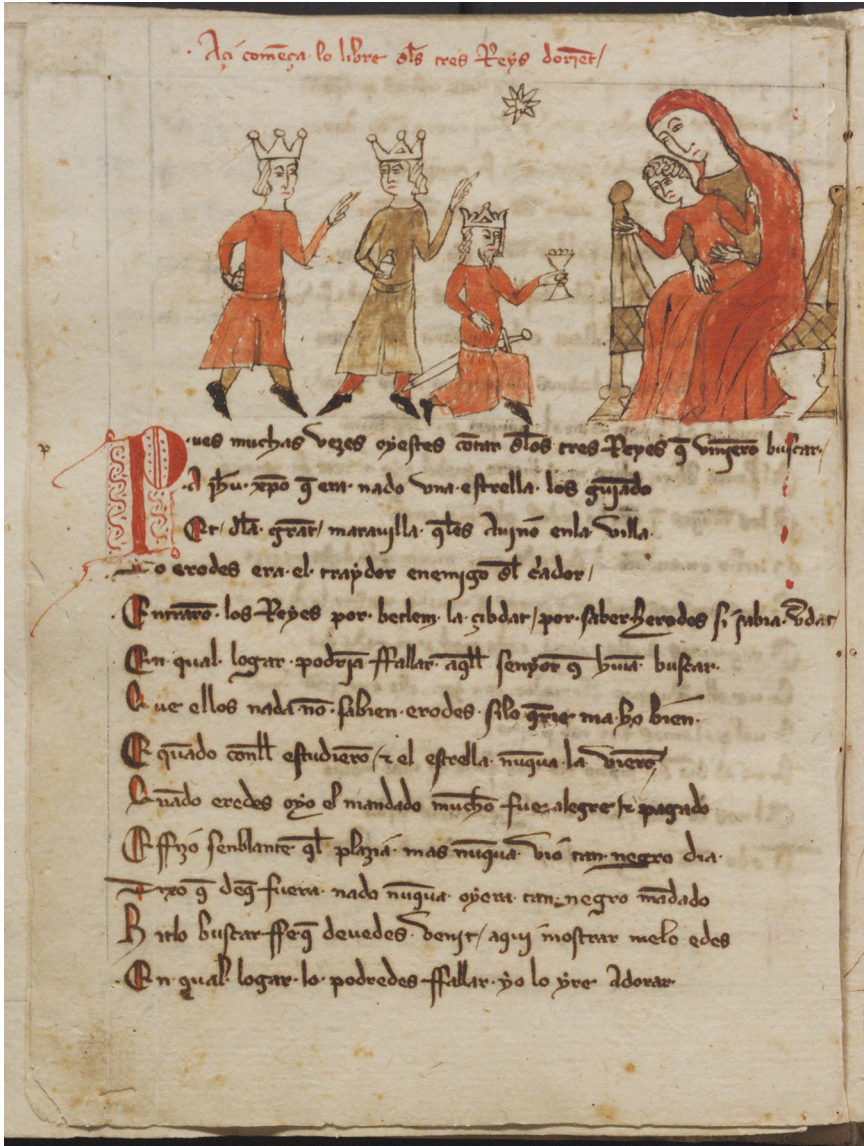 Açi comença lo libre dls tres Reys dorient
Pues muchas vezes oyestes cōtar dlos tres Reyes q̄ vinierō buscar
A jhū xpo q̄ era nado vna estrella los guiādo
Et dla grāt marauilla q̄les Auino enla villa
Do erodes era el traydor enemigo dl c̄ador
Entrarō los Reyes por betlem la çibdat por saber herodes si sabia v̄dat
En qual logar podrian ffallar aq̄ll senyor q̄ yuan buscar
Que ellos nada no sabien erodes silo q̄rie mal o bien
E quādo conll estudierō ⁊ el estrella nūqua la vierō
Quādo erodes oyo el mandado mucho fue alegre ⁊ pagado
E ffizo senblante q̄l plazia mas nūqua vio tan negro dia
Dixo q̄ deq̄ fuera nado nūqua oyera tan negro mādado
Hitlo buscar ffe q̄ deuedes venit aqui mostrar melo edes
En qual logar lo podredes ffallar yo lo yre Adorar